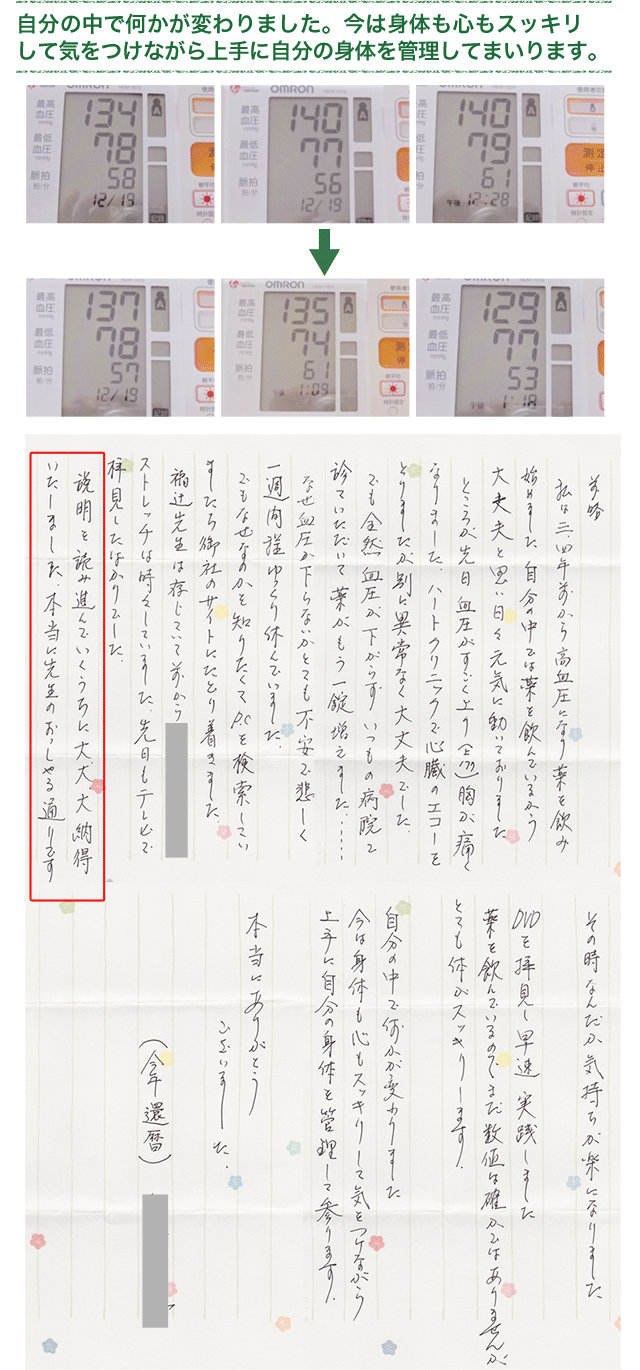 自分の中で何かが変わりました。今は身体も心もスッキリ
して気をつけながら上手に自分の身体を管理してまいります。
最高
血圧
mmHg
134
最低
血圧
mmHg
78
脈拍
拍/分
58
12/19
A
記録
OMRON
最高
血圧
mmHg
140
最低
血圧
mmHg
77
脈拍
拍/分
56
12/19
A
測定
停止
朝平均
時計設定
記録
OMRON
使用者切替
最高
血圧
mmHg
140
最低
血圧
mmHg
79
脈拍
拍/分
61
午後 12:28
A
測定
停止
朝平均
時計設定
記録
最高
血圧
mmHg
137
最低
血圧
mmHg
78
脈拍
拍/分
57
12/19
A
記録
OMRON
最高
血圧
mmHg
135
最低
血圧
mmHg
74
脈拍
拍/分
61
1:09
A
朝平均
時計設定
OMRON
最高
血圧
mmHg
129
最低
血圧
mmHg
77
脈拍
拍/分
53
午後 1:18
A
朝平均
時計設定
記録
前略
私は三、四年前から高血圧になり薬を飲み
始めました 自分の中では薬を飲んでいるから
大丈夫と思い日々元気に動いておりました
ところが先日 血圧がすごく上り 胸が痛く
なりました、ハートクリニックで心臓のエコーを
とりましたが別に異常なく大丈夫でした、
でも全然血圧が下がらず いつもの病院で
診ていただいて薬がもう一錠増えました、……
なぜ血圧が下らないかとても不安で悲しく
一週間程ゆっくり休んでいました、
でもなぜなのかを知りたくてP.Cを検索してい
ましたら御社のサイトにたどり着きました、
福辻先生は存じていて前から
ストレッチは時々していました、先日もテレビで
拝見したばかりでした、
説明を読み進んでいくうちに大、大、大納得
いたしました、本当に先生のおっしゃる通りです
その時なんだか気持ちが楽になりました
DVDを拝見し早速実践しました
薬を飲んでいるのでまだ数値は確かではありませんが
とても体がスッキリします、
自分の中で何かが変わりました
今は身体も心もスッキリして気をつけながら
上手に自分の身体を管理して参ります、
本当にありがとう
ございました、
(今年還暦)